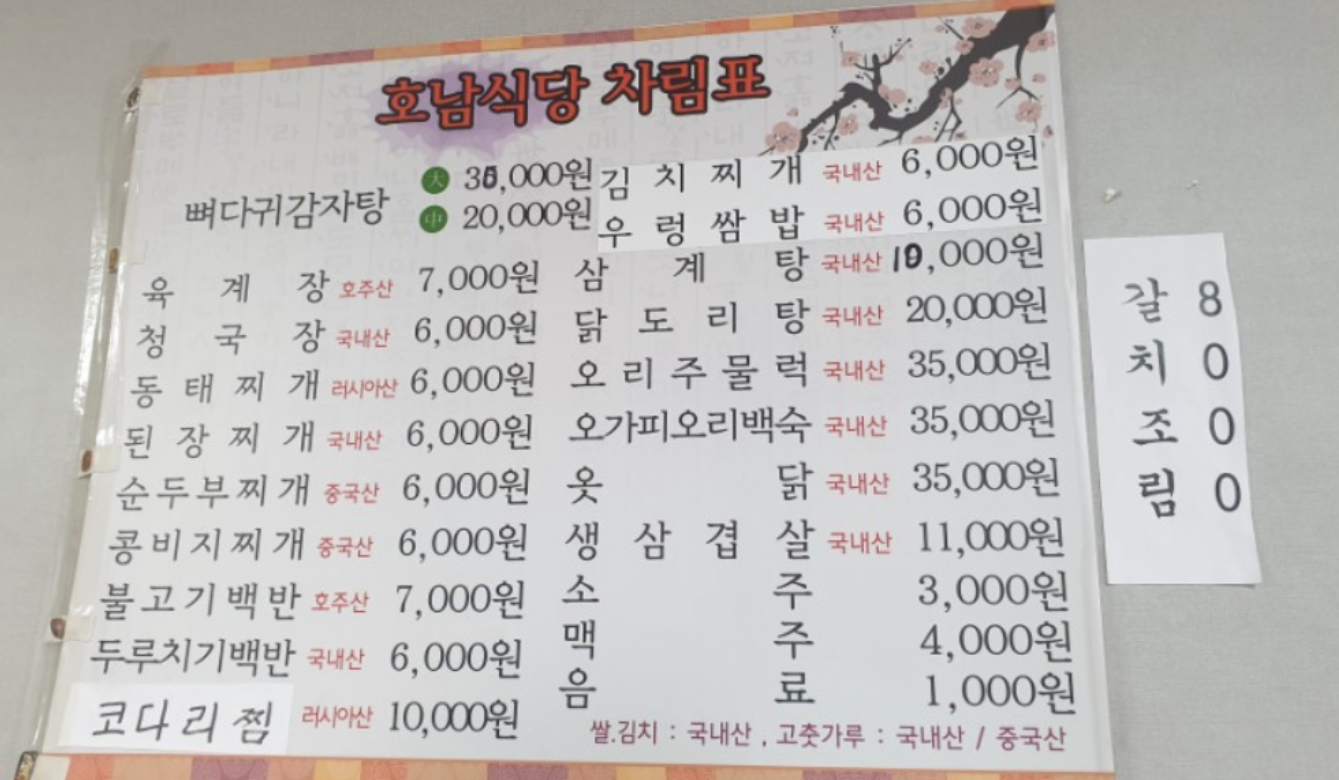 호남식당 차림표
뼈다귀감자탕 大 35,000원
中 20,000원
육계장 호주산 7,000원
청국장 국내산 6,000원
동태찌개 러시아산 6,000원
된장찌개 국내산 6,000원
순두부찌개 중국산 6,000원
콩비지찌개 중국산 6,000원
불고기백반 호주산 7,000원
두루치기백반 국내산 6,000원
코다리찜 러시아산 10,000원
김치찌개 국내산 6,000원
우렁쌈밥 국내산 6,000원
삼계탕 국내산 10,000원
닭도리탕 국내산 20,000원
오리주물럭 국내산 35,000원
오가피오리백숙 국내산 35,000원
옻닭 국내산 35,000원
생삼겹살 국내산 11,000원
소주 3,000원
맥주 4,000원
음료 1,000원
쌀.김치 : 국내산 , 고춧가루 : 국내산 / 중국산
갈치조림 8000